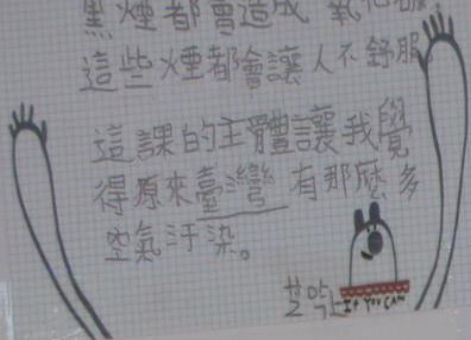 黑煙都會造成 氧化
這些煙都會讓人不舒服
這課的主體讓我覺
得原來臺灣 有那麼多
空氣汙染。
IF YOU CAN